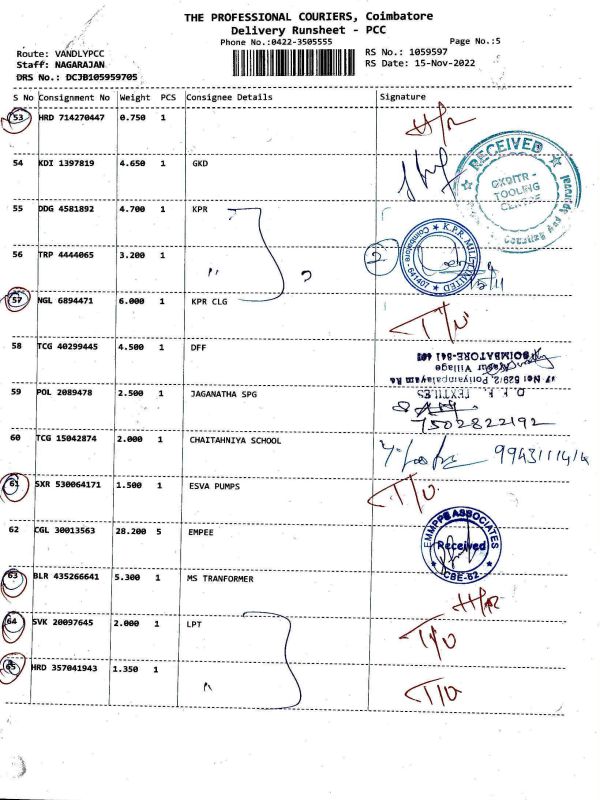 THE PROFESSIONAL COURIERS, Coimbatore
Delivery Runsheet - PCC
Phone No.:0422-3505555 Page No.:5
Route: VANDLYPCC RS No.: 1059597
Staff: NAGARAJAN RS Date: 15-Nov-2022
DRS No.: DCJB105959705
S No Consignment No Weight PCS Consignee Details Signature
53 HRD 714270447 0.750 1 H/R
RECEIVED
54 KDI 1397819 4.650 1 GKD
TOOLING
55 DDG 4581892 4.700 1 KPR
K.P.R MILL LIMITED
Coimbatore - 641407
56 TRP 4444065 3.200 1 " 2
57 NGL 6894471 6.000 1 KPR CLG T/U
58 TCG 40299445 4.500 1 DFF
COIMBATORE-641
Village
TEXTILES
59 POL 2089478 2.500 1 JAGANATHA SPG
7502822192
60 TCG 15042874 2.000 1 CHAITAHNIYA SCHOOL
61 SXR 530064171 1.500 1 ESVA PUMPS T/U
62 CGL 30013563 28.200 5 EMPEE
EMMPPE ASSOCIATES
Received
CBE-62
63 BLR 435266641 5.300 1 MS TRANFORMER H/R
64 SVK 20097645 2.000 1 LPT T/U
65 HRD 357041943 1.350 1 " T/U